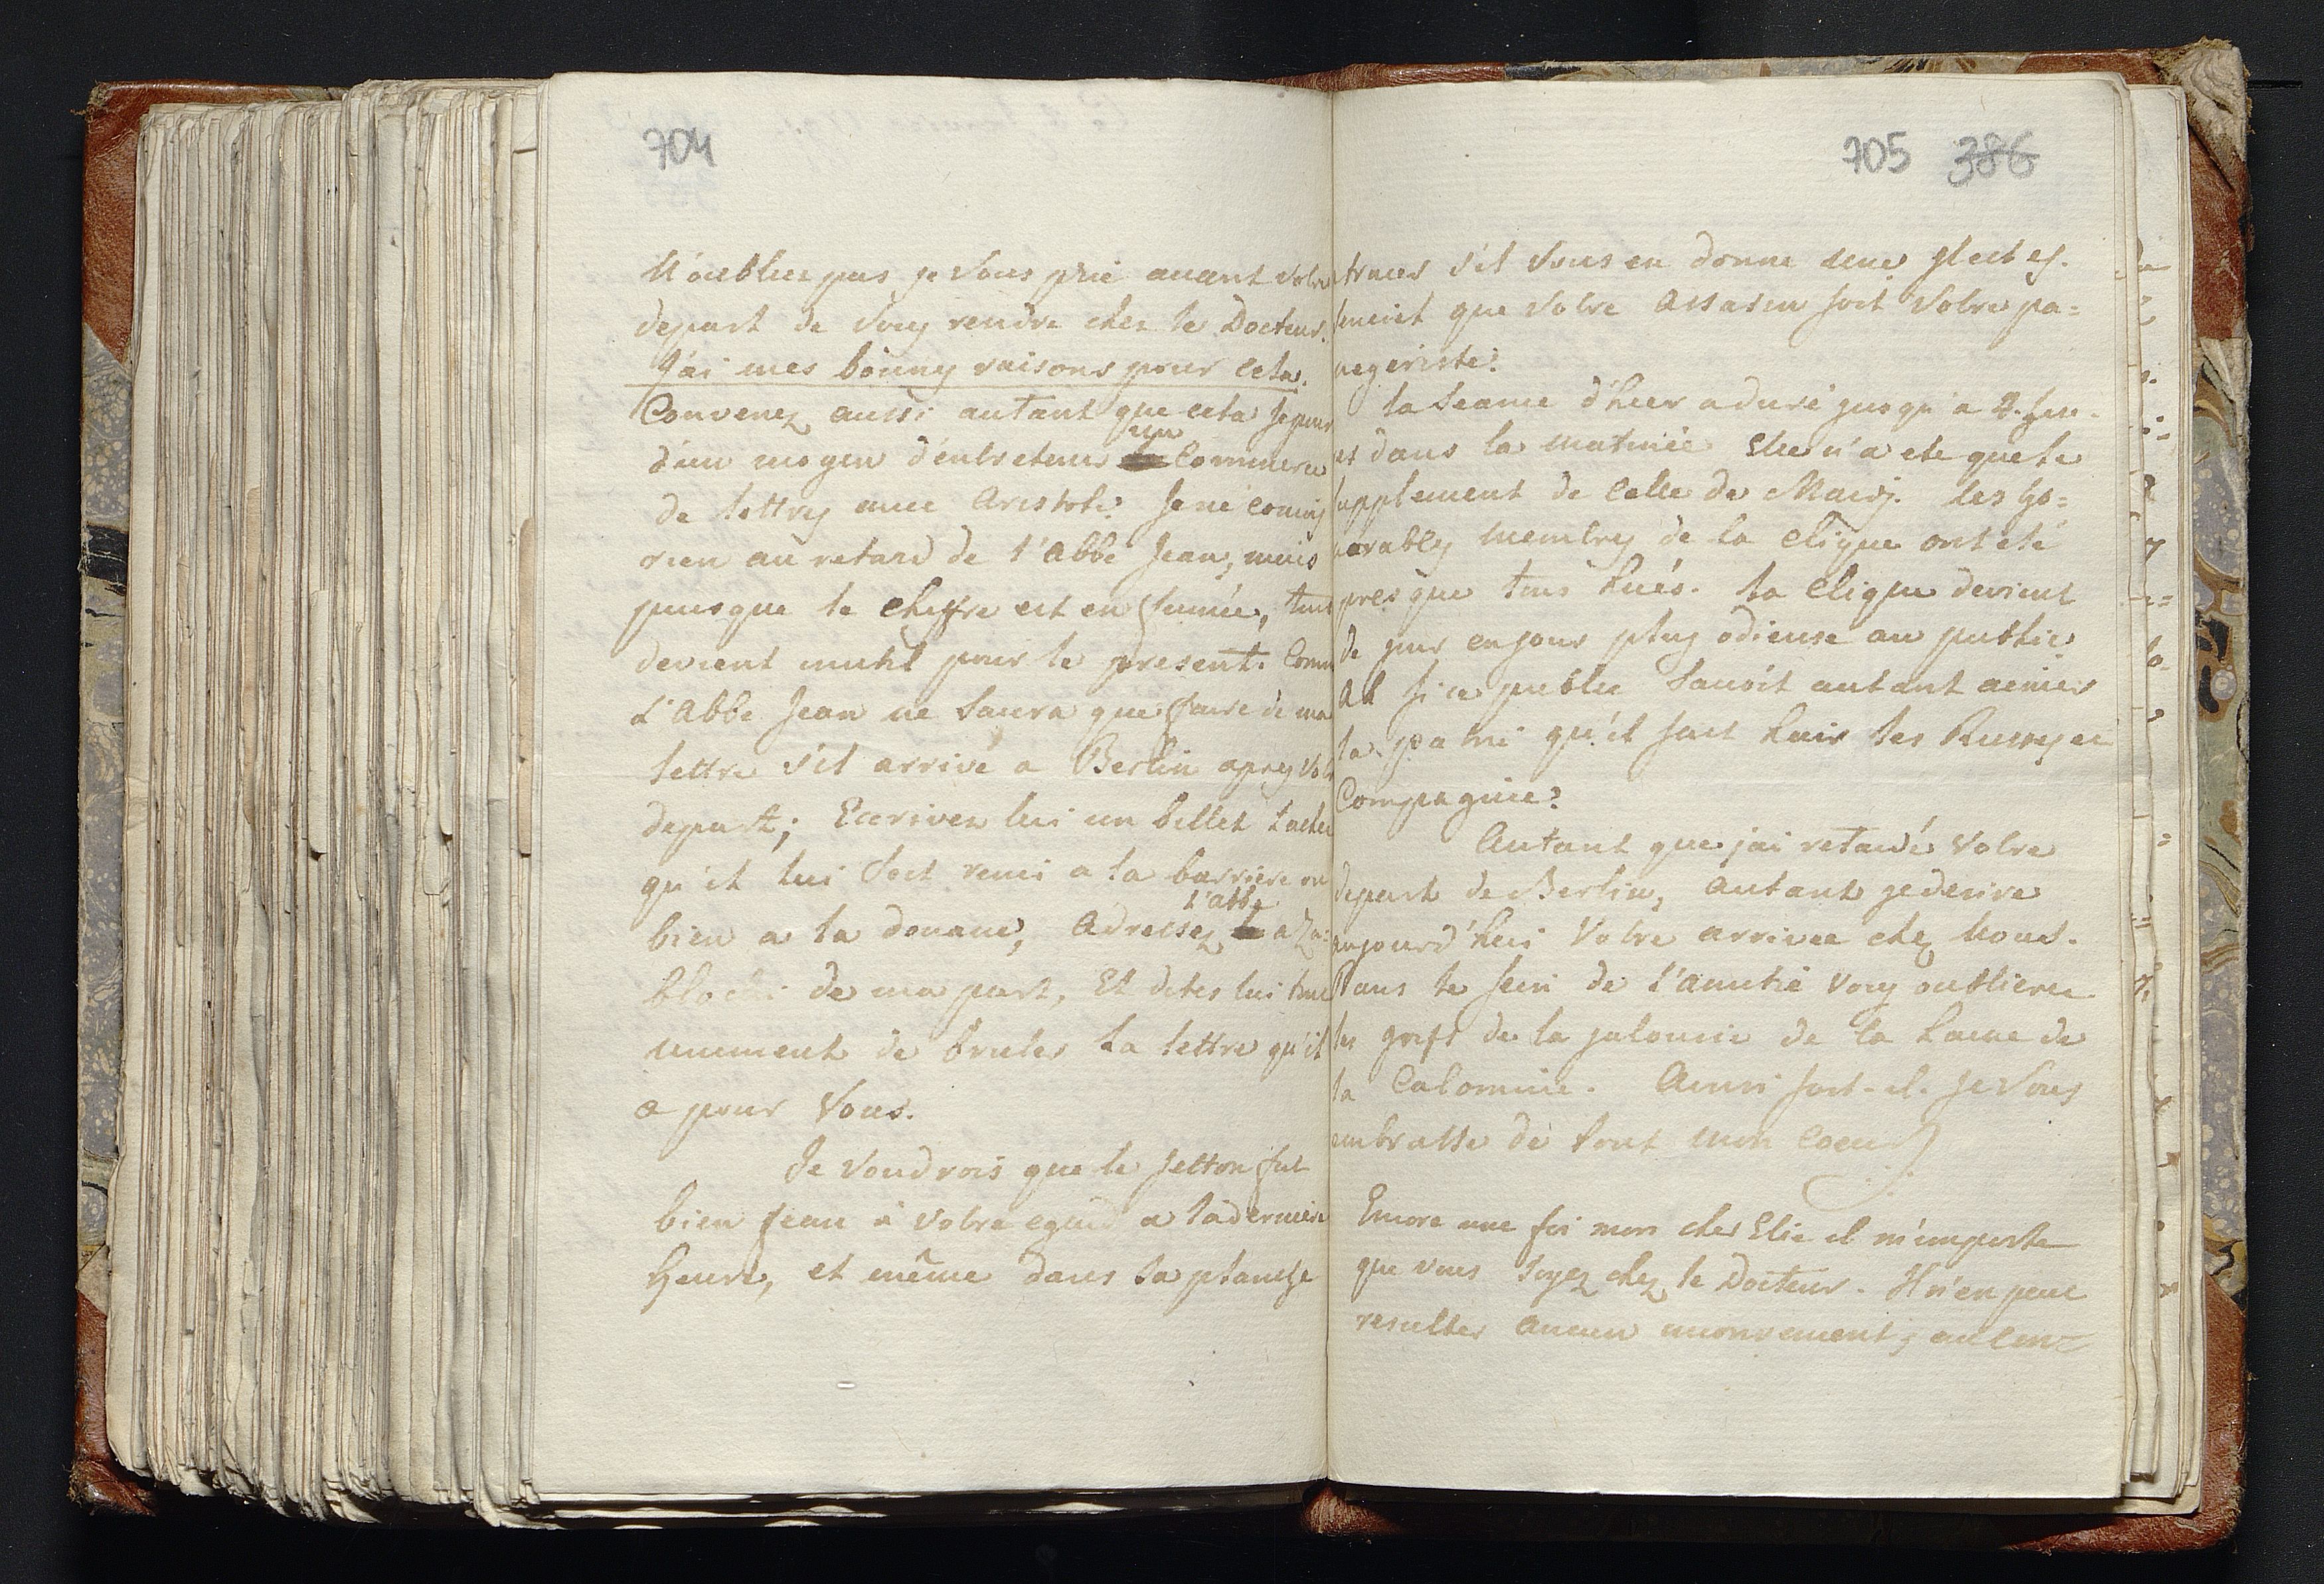 704
N'oubliez pas je Vous prie avant votre
depart de vous rendre chez le Docteur.
J'ai mes bonnes raisons pour cela.
Convenez aussi autant que cela se peut
d'un moyen d'entretenir un Commerce
de lettres avec Aristote. Je ne
rien au retard de l'Abbé Jean, mais
puisque le cheffre est en fumée, tout
devient inutil pour le present. Comme
L'Abbe Jean ne saura que faire de ma
lettre s'il arrive a Berlin apres Votre
depart; Ecrivez lui un billet
qu'il lui soit remi a la barriere ou
bien a la douane, Adressez l'abbe a Za=
blocki de ma part, Et dites lui
de bruler La lettre qu'il
a pour Vous.
Je Voudrois que le fut
bien Jean a Votre egard a la derniere
heure, et même dans la planche
705 386
s'il Vous en donne une. Il est es-
que Votre Assasin soit Votre pa=
negeriste.
la Seance d'hier a duré jusqu'a 2. heu-
res dans la matinée Elle n'a eté que le
supplement de Celle de Mardj. les ho=
norables membres de la Clique ont eté
presque tous hués. la Clique devient
de jour en jour plus odieuse au public
Ah si ce public Savoit autant aimer
la patrie qu'il sait hair les Russes et
Compagnie?
Autant que j'ai retardé Votre
depart de Berlin, Autant je desire
aujourd'hui Votre arrivee chez Nous.
Dans le sein de l'amitié vous oublierez
les de la jalousie de la haine de
la Calomnie. Ainsi soit-il. Je Vous
embrasse de tout mon Coeur
Encore une foi mon cher Elie il m'importe
que vous soyez chez le Docteur. Il n'en peut
resulter Aucun inconvenient,